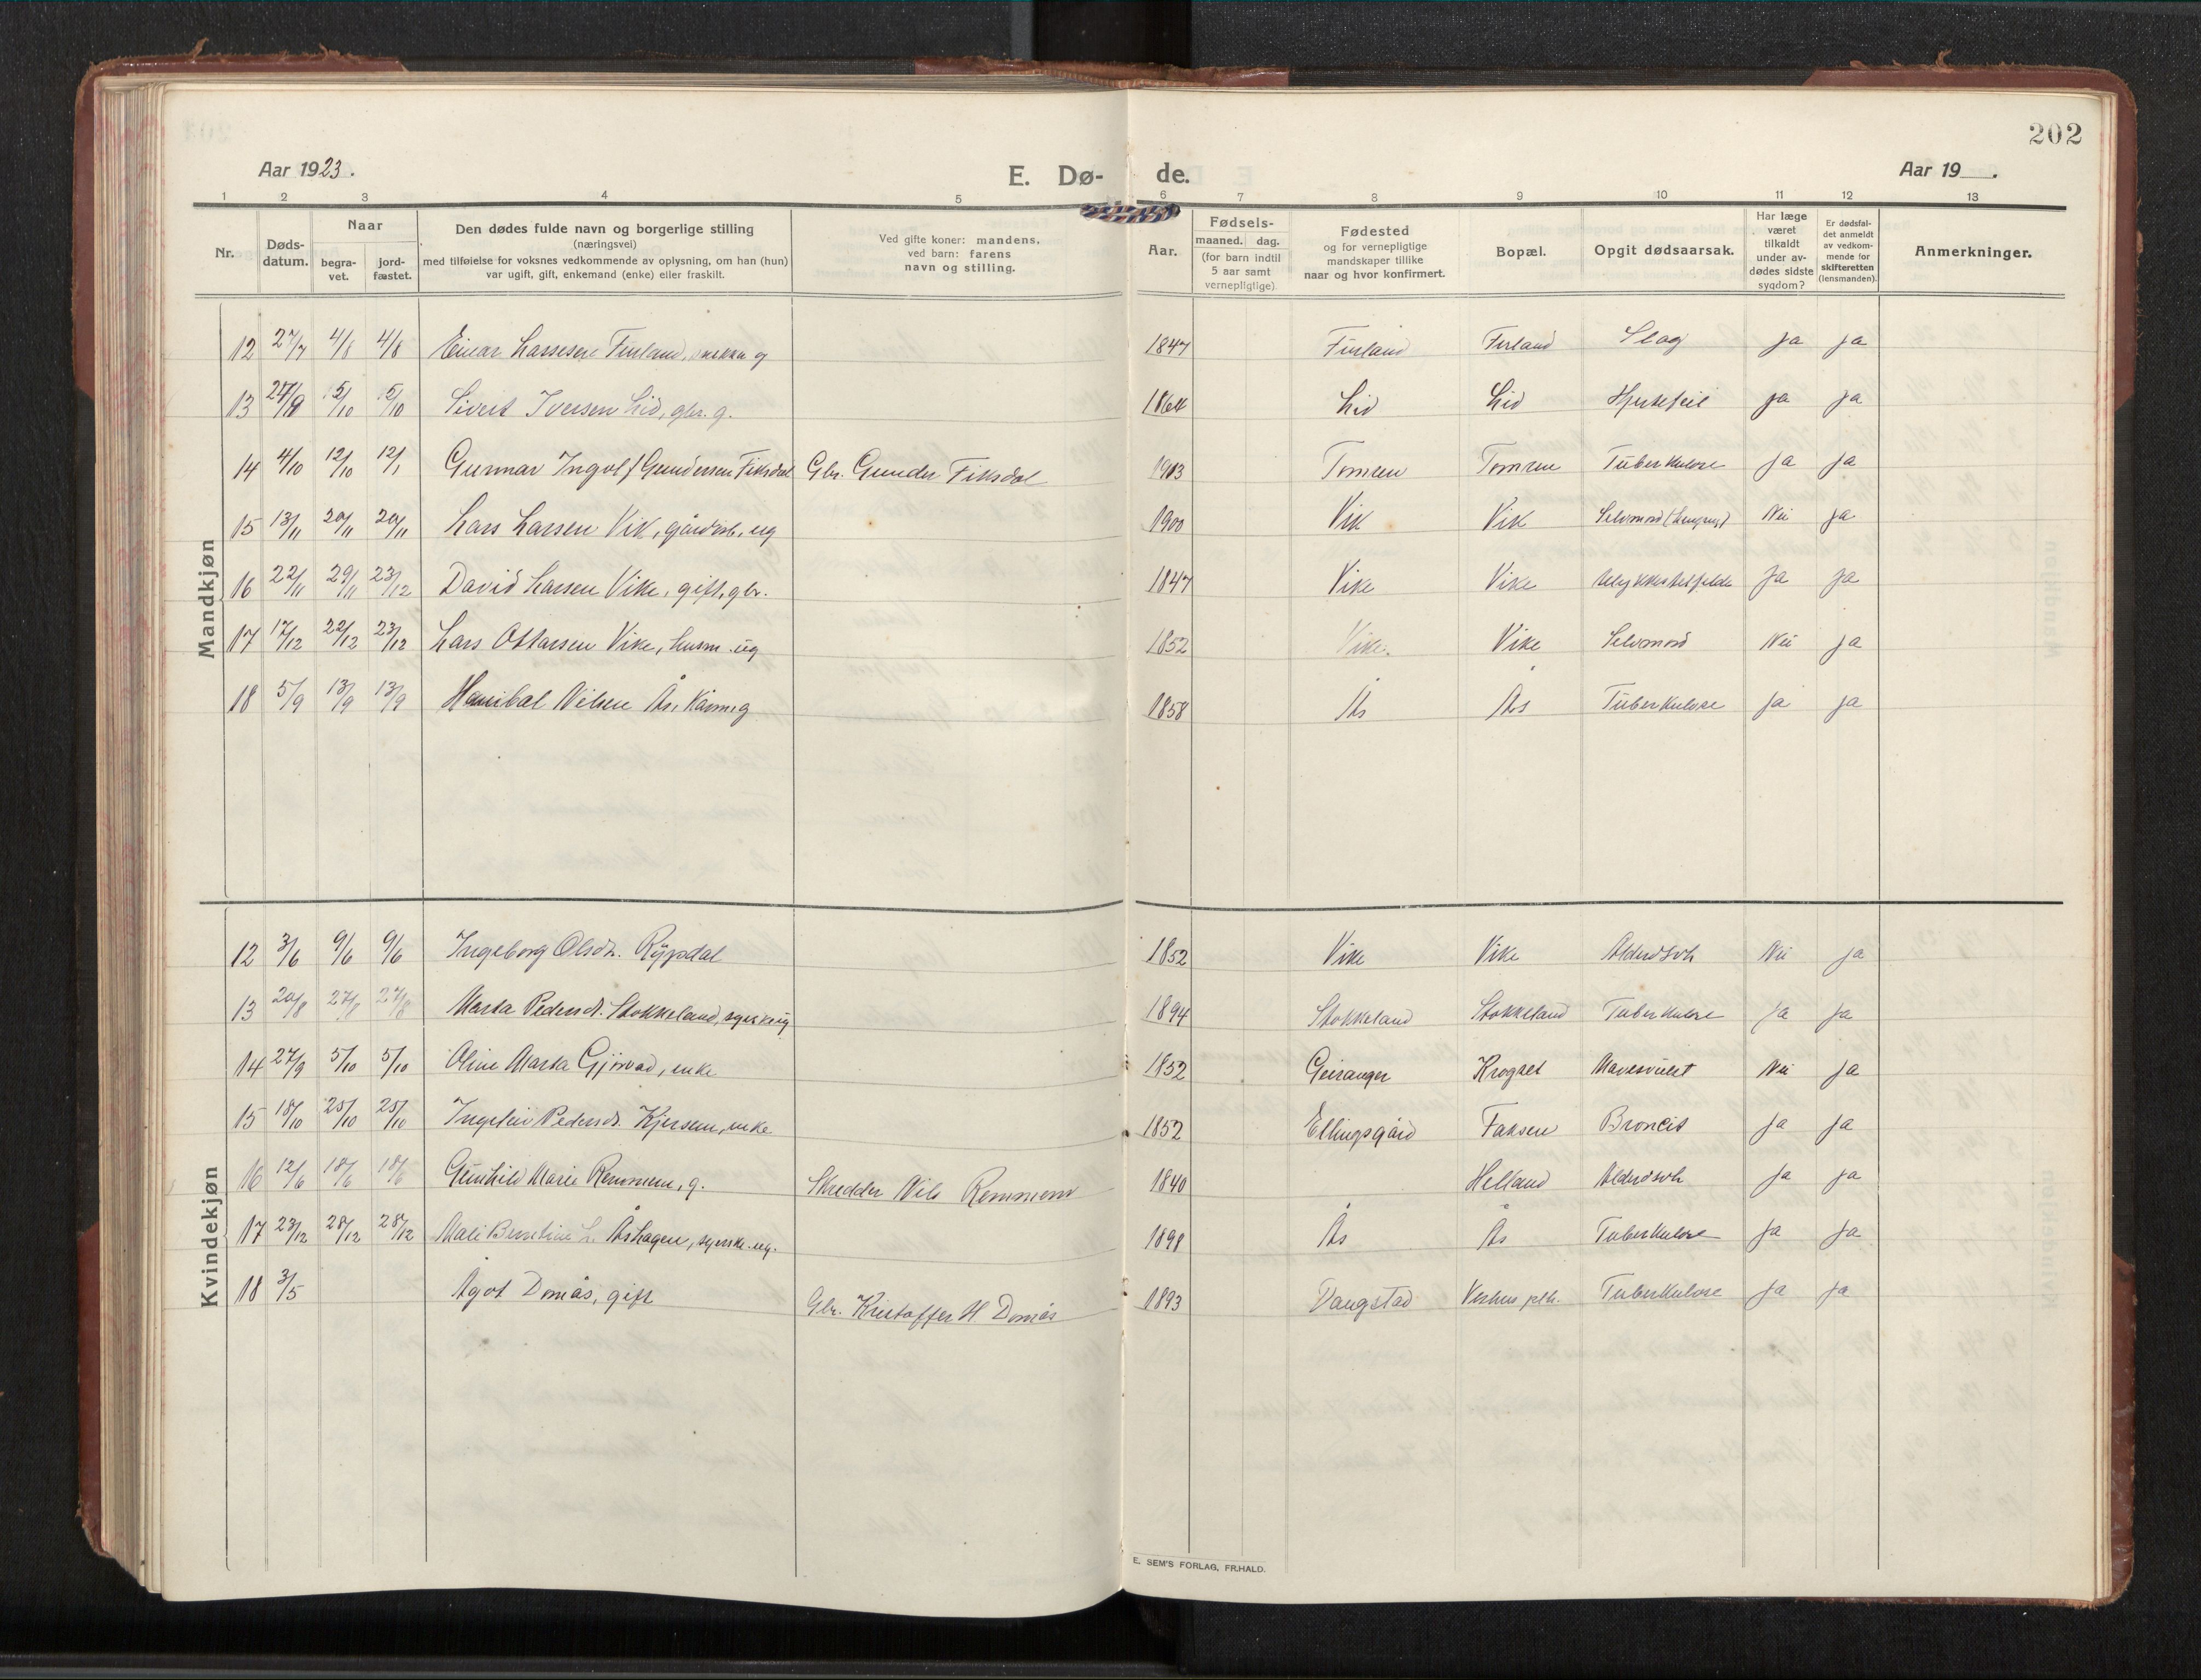 202
Aar 1923.
E. Dø- de.
Aar 19 .
1 2 3 4 5 6 7 8 9 10 11 12 13
Nr.
Døds-
datum.
Naar
begra-
vet.
jord-
fæstet.
Den dødes fulde navn og borgerlige stilling
(næringsvei)
med tilføielse for voksnes vedkommende av oplysning, om han (hun)
var ugift, gift, enkemand (enke) eller fraskilt.
Ved gifte koner: mandens,
ved barn: farens
navn og stilling.
Aar.
Fødsels-
maaned. dag.
(for barn indtil
5 aar samt
vernepligtige).
Fødested
og for vernepligtige
mandskaper tillike
naar og hvor konfirmert.
Bopæl.
Opgit dødsaarsak.
Har læge
været
tilkaldt
under av-
dødes sidste
sygdom?
Er dødsfal-
det anmeldt
av vedkom-
mende for
skifteretten
(lensmanden).
Anmerkninger.
Mandkjøn
12 27/7 4/8 4/8 Einar Lassesen 1847 Slag ja ja
13 5/10 5/10 Sivert Iversen Lid, gbr. g. 1864 Lid Lid Hjertefeil ja ja
14 4/10 12/10 12/1 Gunnar Ingolf Gundersen Fiksdal Gbr. Gunder Fiksdal 1903 Tomren Tomren Tuberkulose ja ja
15 13/11 20/11 20/11 Lars Larsen Vik, ug 1900 Vik Vik Selvmord Nei ja
16 22/11 29/11 23/12 David Larsen Vike, gift, gbr. 1847 Vike Vike Ulykkestilfelde ja ja
17 17/12 22/12 23/12 Lars Ottarsen Vike, husm. ug 1852 Vike Vike Selvmord Nei ja
18 5/9 13/9 13/9 Hanibal Nilsen Ås, g 1858 Ås Ås Tuberkulose ja ja
Kvindekjøn
12 3/6 9/6 9/6 Ingeborg Olsdr. Rypdal 1852 Vike Vike Alderdsvh Nei ja
13 20/8 27/8 27/8 Marta Pedersd. Stokkeland, 1894 Stokkeland Stokkeland Tuberkulose ja ja
14 27/9 5/10 5/10 Oline Marta Gjørvad, enke 1852 Geiranger Krogset Mavesvulst Nei ja
15 18/10 25/10 25/10 Pedersd. Kjersem, enke 1852 Ellingsgård Faksen Broncit ja ja
16 12/6 18/6 18/6 Gunhild Marie Remmem, g. Skredder Nils Remmem 1840 Helland Alderdsvh ja ja
17 23/12 28/12 28/12 L. Åshagen, syerske. ug. 1898 Ås Ås Tuberkulose ja ja
18 3/5 Ågot Domås, gift Gbr. Kristoffer H. Domås 1893 Daugstad Tuberkulose ja ja
E. SEM'S FORLAG, FR.HALD.